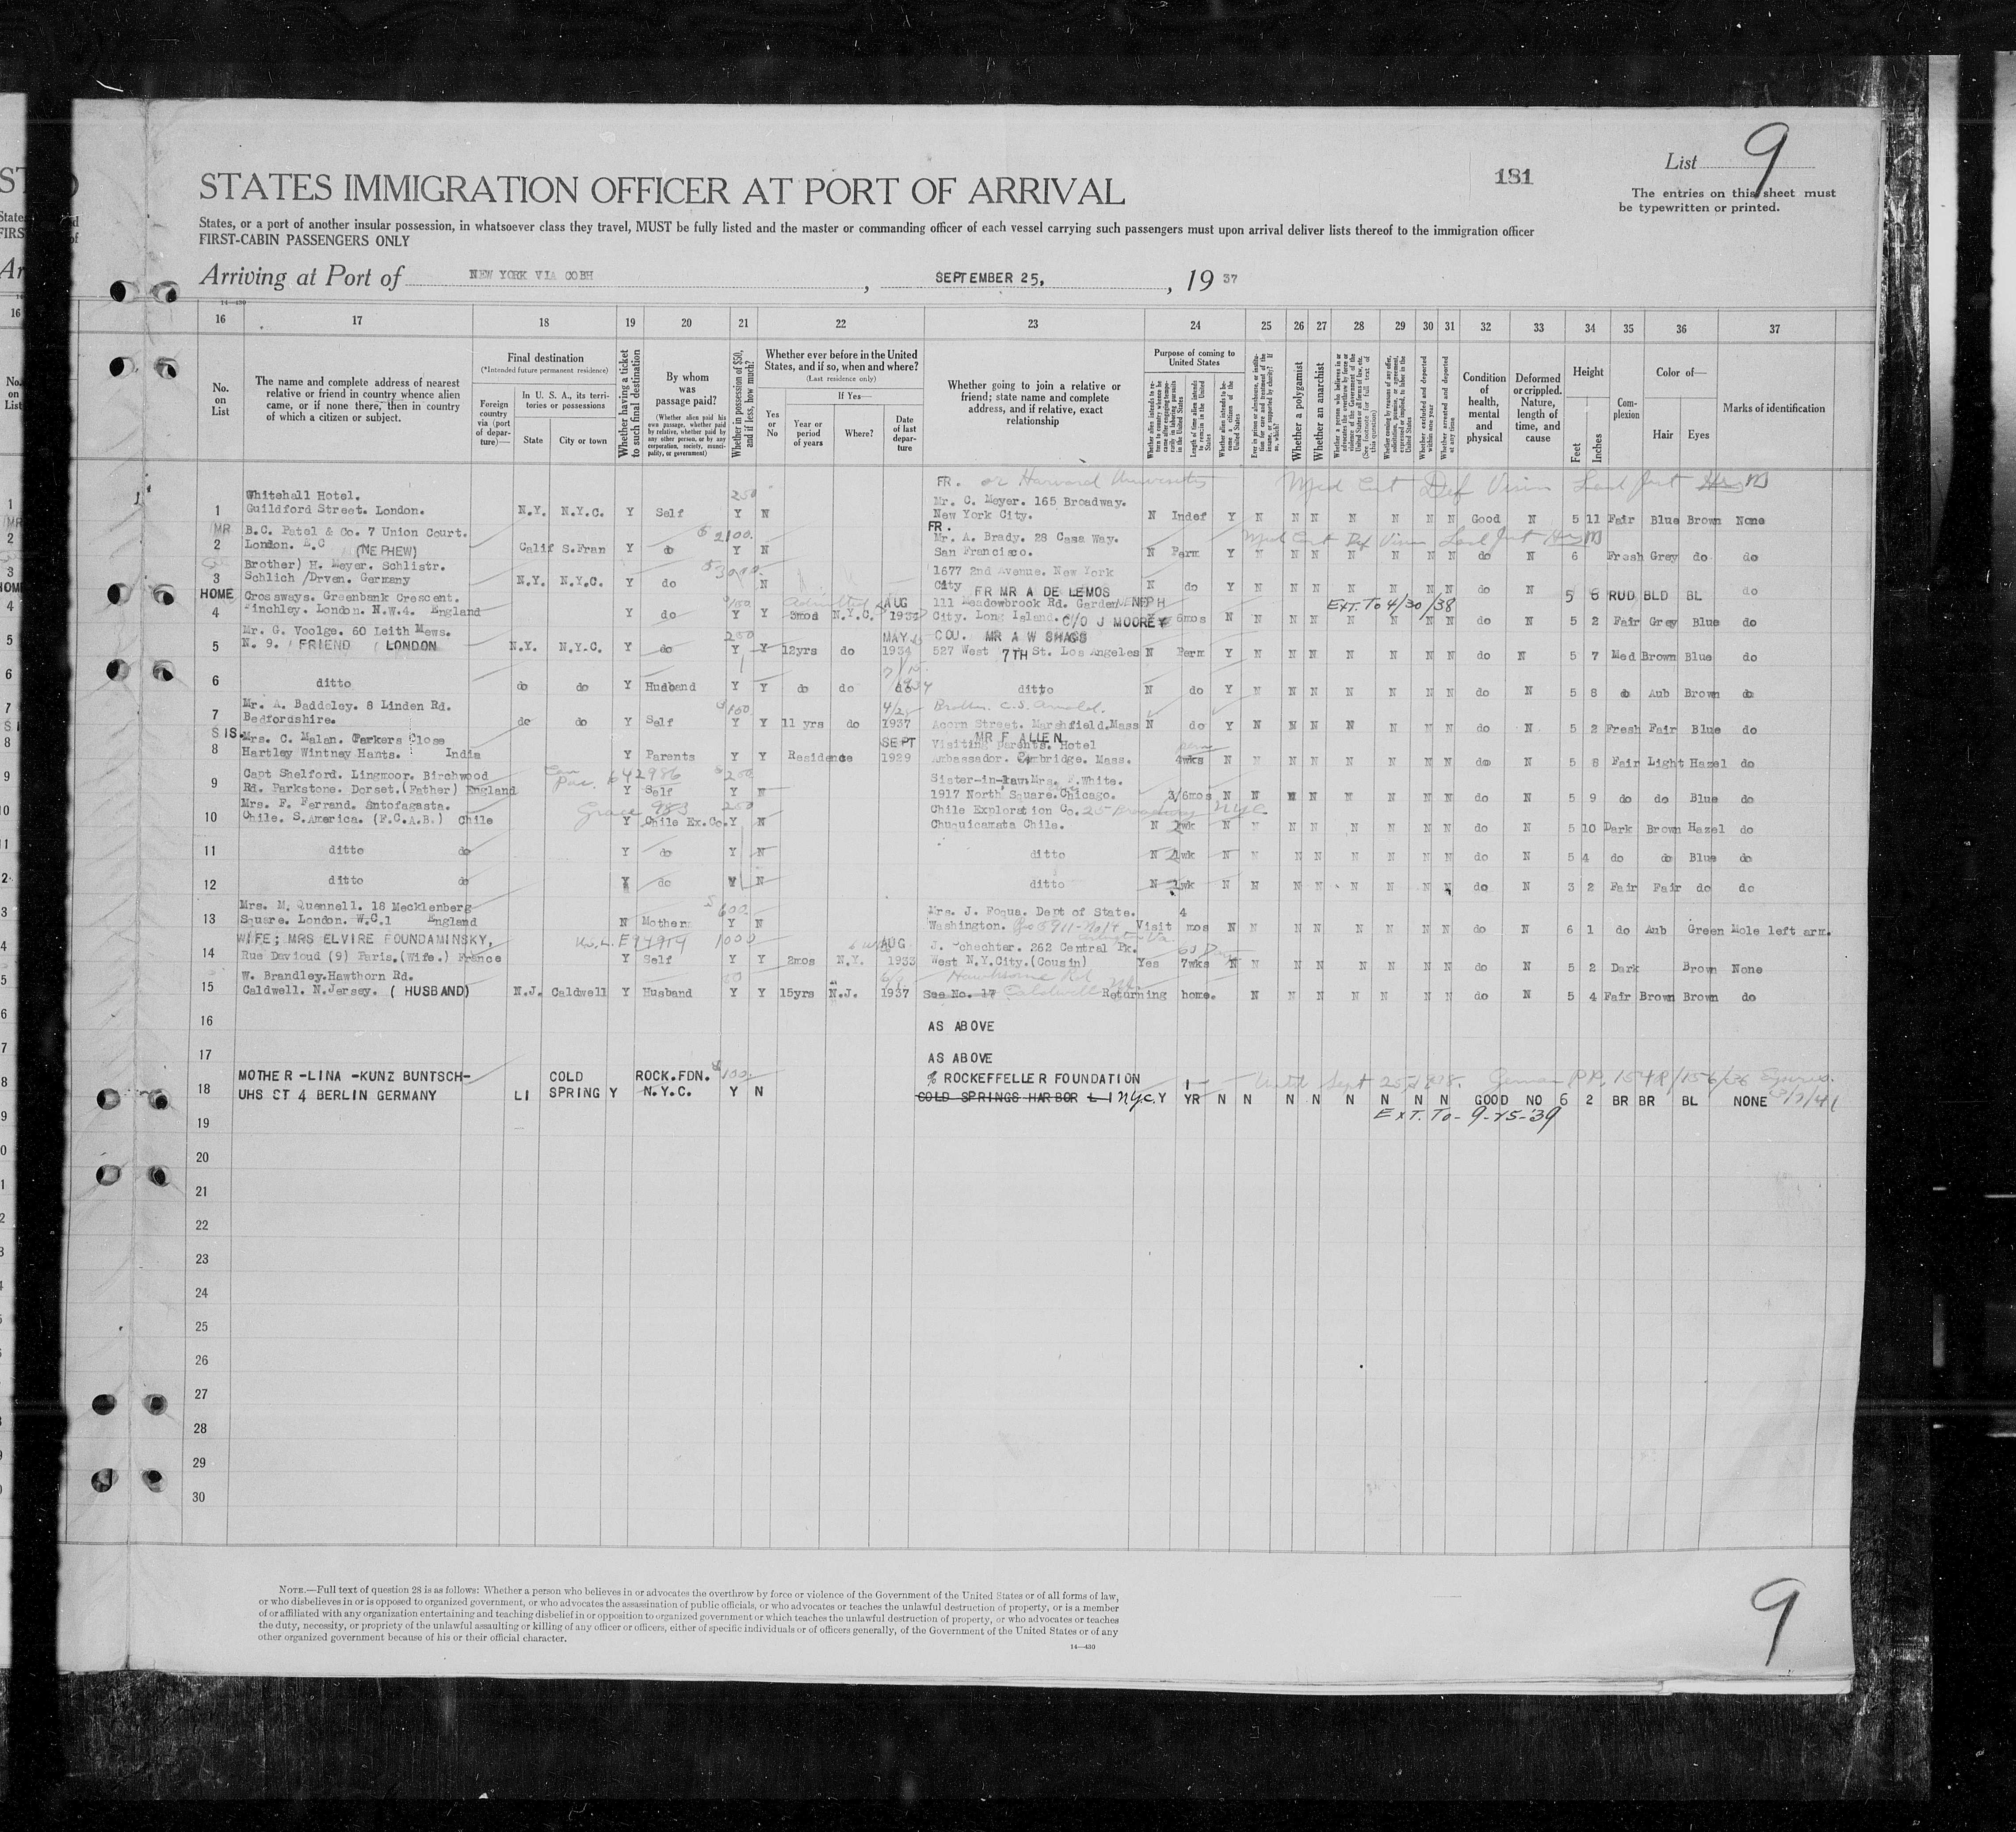 List 9
181
The entries on this sheet must
be typewritten or printed.
STATES IMMIGRATION OFFICER AT PORT OF ARRIVAL
States, or a port of another insular possession, in whatsoever class they travel, MUST be fully listed and the master or commanding officer of each vessel carrying such passengers must upon arrival deliver lists thereof to the immigration officer
FIRST-CABIN PASSENGERS ONLY
Arriving at Port of NEW YORK VIA COBH, SEPTEMBER 25, 1937
14—430
16 17 18 19 20 21 22 23 24 25 26 27 28 29 30 31 32 33 34 35 36 37
No. on List
The name and complete address of nearest relative or friend in country whence alien came, or if none there, then in country of which a citizen or subject.
Final destination
(*Intended future permanent residence)
Foreign country via (port of departure)—
In U. S. A., its territories or possessions
State
City or town
Whether having a ticket to such final destination
By whom was passage paid?
(Whether alien paid his own passage, whether paid by relative, whether paid by any other person, or by any corporation, society, municipality, or government)
Whether in possession of $50, and if less, how much?
Whether ever before in the United States, and if so, when and where?
(Last residence only)
Yes or No
If Yes—
Year or period of years
Where?
Date of last departure
Whether going to join a relative or friend; state name and complete address, and if relative, exact relationship
Purpose of coming to United States
Length of time alien intends to remain in the United States
Whether alien intends to become a citizen of the United States
Whether a polygamist
Whether an anarchist
Whether excluded and deported within one year
Whether arrested and deported at any time
Condition of health, mental and physical
Deformed or crippled. Nature, length of time, and cause
Height
Feet
Inches
Complexion
Color of—
Hair
Eyes
Marks of identification
FR. or Harvard University Med Cert Def Vision
Whitehall Hotel. 250 Mr. C. Meyer. 165 Broadway.
1 Guildford Street. London. N.Y. N.Y.C. Y Self Y N New York City. N Indef Y N N N N N N N Good N 5 11 Fair Blue Brown None
MR B.C. Patel & Co. 7 Union Court. $2100. FR. Mr. A. Brady. 28 Casa Way. Med Cert Def Vision
2 London. E.C (NEPHEW) Calif S.Fran Y do Y N San Francisco. N Perm Y N N N N N N N do N 6 Fresh Grey do do
Brother) H. Meyer. Schlistr. 1677 2nd Avenue. New York
3 Schlich /Drven. Germany N.Y. N.Y.C. Y do N City N do Y N N N N N N N do N 5 6 RUD BLD BL do
HOME Crossways. Greenbank Crescent. $100. Admitted AUG FR MR A DE LEMOS 111 Meadowbrook Rd. Garden EXT. To 4/30/38
4 Finchley. London. N.W.4. England Y do Y Y 3mos N.Y.C. City. Long Island. C/O J MOOREY 6mos N N N N N N N N do N 5 2 Fair Grey Blue do
Mr. G. Voolge. 60 Leith Mews. 250 MAY COU. MR A W SHAGS
5 N. 9. FRIEND LONDON N.Y. N.Y.C. Y do Y Y 12yrs do 1934 527 West 7TH St. Los Angeles N Perm Y N N N N N N N do N 5 7 Med Brown Blue do
6 ditto do do Y Husband Y Y do do do ditto N do Y N N N N N N N do N 5 8 do Aub Brown do
Mr. A. Baddeley. 8 Linden Rd. $100 Brother. C.S. Arnold.
7 Bedfordshire. do do Y Self Y Y 11 yrs do 1937 Acorn Street. Marshfield.Mass N do Y N N N N N N N do N 5 2 Fresh Fair Blue do
SIS. Mrs. C. Malan. Parkers Close SEPT MR F ALLEN Visiting parents. Hotel
8 Hartley Wintney Hants. India Y Parents Y Y Residence 1929 Ambassador. Cambridge. Mass. 4wks N N N N N N N N do N 5 8 Fair Light Hazel do
Capt Shelford. Lingmoor. Birchwood Can Pac. 642986 $250 Sister-in-law.Mrs. White.
9 Rd. Parkstone. Dorset.(Father) England Y Self Y N 1917 North Square.Chicago. 3/6mos N N N N N N N N do N 5 9 do do Blue do
Mrs. F. Ferrand. Antofagasta. Grace 983 250 Chile Exploration Co. 25 Broadway NYC
10 Chile. S.America. (F.C.A.B.) Chile Y Chile Ex.Co. Y N Chuquicamata Chile. N 2wk N N N N N N N N do N 5 10 Dark Brown Hazel do
11 ditto do Y do Y N ditto N 2wk N N N N N N N N do N 5 4 do do Blue do
12 ditto do Y do Y N ditto N 2wk N N N N N N N N do N 3 2 Fair Fair do do
Mrs. M. Quennell. 18 Mecklenberg $600. Mrs. J. Foqua. Dept of State. 4
13 Square. London. W.C.1 England N Mother Y N Washington. Visit mos N N N N N N N N do N 6 1 do Aub Green Mole left arm.
WIFE; MRS ELVIRE FOUNDAMINSKY, 1000 AUG J. Schechter. 262 Central Pk. 60 Days
14 Rue Davioud (9) Paris.(Wife.) France Y Self Y Y 2mos N.Y. 1933 West N.Y.City.(Cousin) Yes 7wks N N N N N N N N do N 5 2 Dark Brown None
W. Brandley.Hawthorn Rd. Hawthorne Rd
15 Caldwell. N.Jersey. ( HUSBAND) N.J. Caldwell Y Husband Y Y 15yrs N.J. 1937 See No. 17 Caldwell Returning home. N N N N N N N do N 5 4 Fair Brown Brown do
16 AS ABOVE
17 AS ABOVE
MOTHER -LINA -KUNZ BUNTSCH- COLD ROCK.FDN. $100. % ROCKEFFELLER FOUNDATION 1 Until Sept 25, 1938. German P.P.
18 UHS ST 4 BERLIN GERMANY LI SPRING Y N.Y.C. Y N COLD SPRINGS HARBOR L I N.Y.C. Y YR N N N N N N N N GOOD NO 6 2 BR BR BL NONE
19 EXT. To- 9-25-39
20
21
22
23
24
25
26
27
28
29
30
NOTE.—Full text of question 28 is as follows: Whether a person who believes in or advocates the overthrow by force or violence of the Government of the United States or of all forms of law,
or who disbelieves in or is opposed to organized government, or who advocates the assassination of public officials, or who advocates or teaches the unlawful destruction of property, or is a member
of or affiliated with any organization entertaining and teaching disbelief in or opposition to organized government or which teaches the unlawful destruction of property, or who advocates or teaches
the duty, necessity, or propriety of the unlawful assaulting or killing of any officer or officers, either of specific individuals or of officers generally, of the Government of the United States or of any
other organized government because of his or their official character.
14—430
9